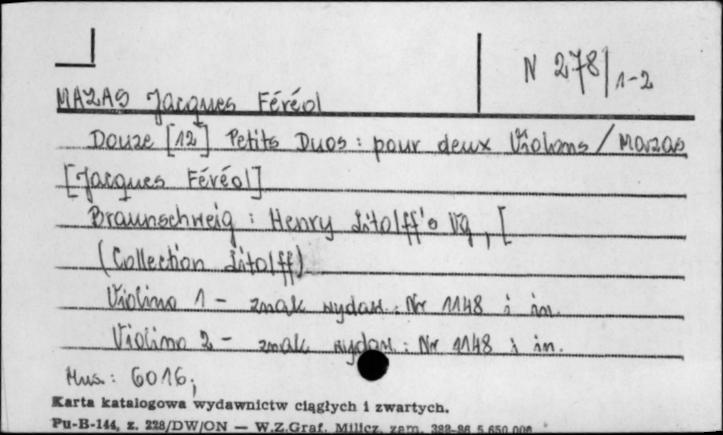 N 278/1-2
MAZAS Jacques Féréol
Douze [12] Petits Duos : pour deux Violons / Mazas
[Jacques Féréol]
Braunschweig : Henry Litolff's Vg, [
(Collection Litolff)
Violino 1 - znak wydaw.: Nr 1148 i in.
Violino 2 - znak wydaw.: Nr 1148 i in.
Mus.: 6016;
Karta katalogowa wydawnictw ciągłych i zwartych.
Pu-B-144, z. 228/DW/ON — W.Z.Graf. Milicz, zam. 382-86 5.650.000